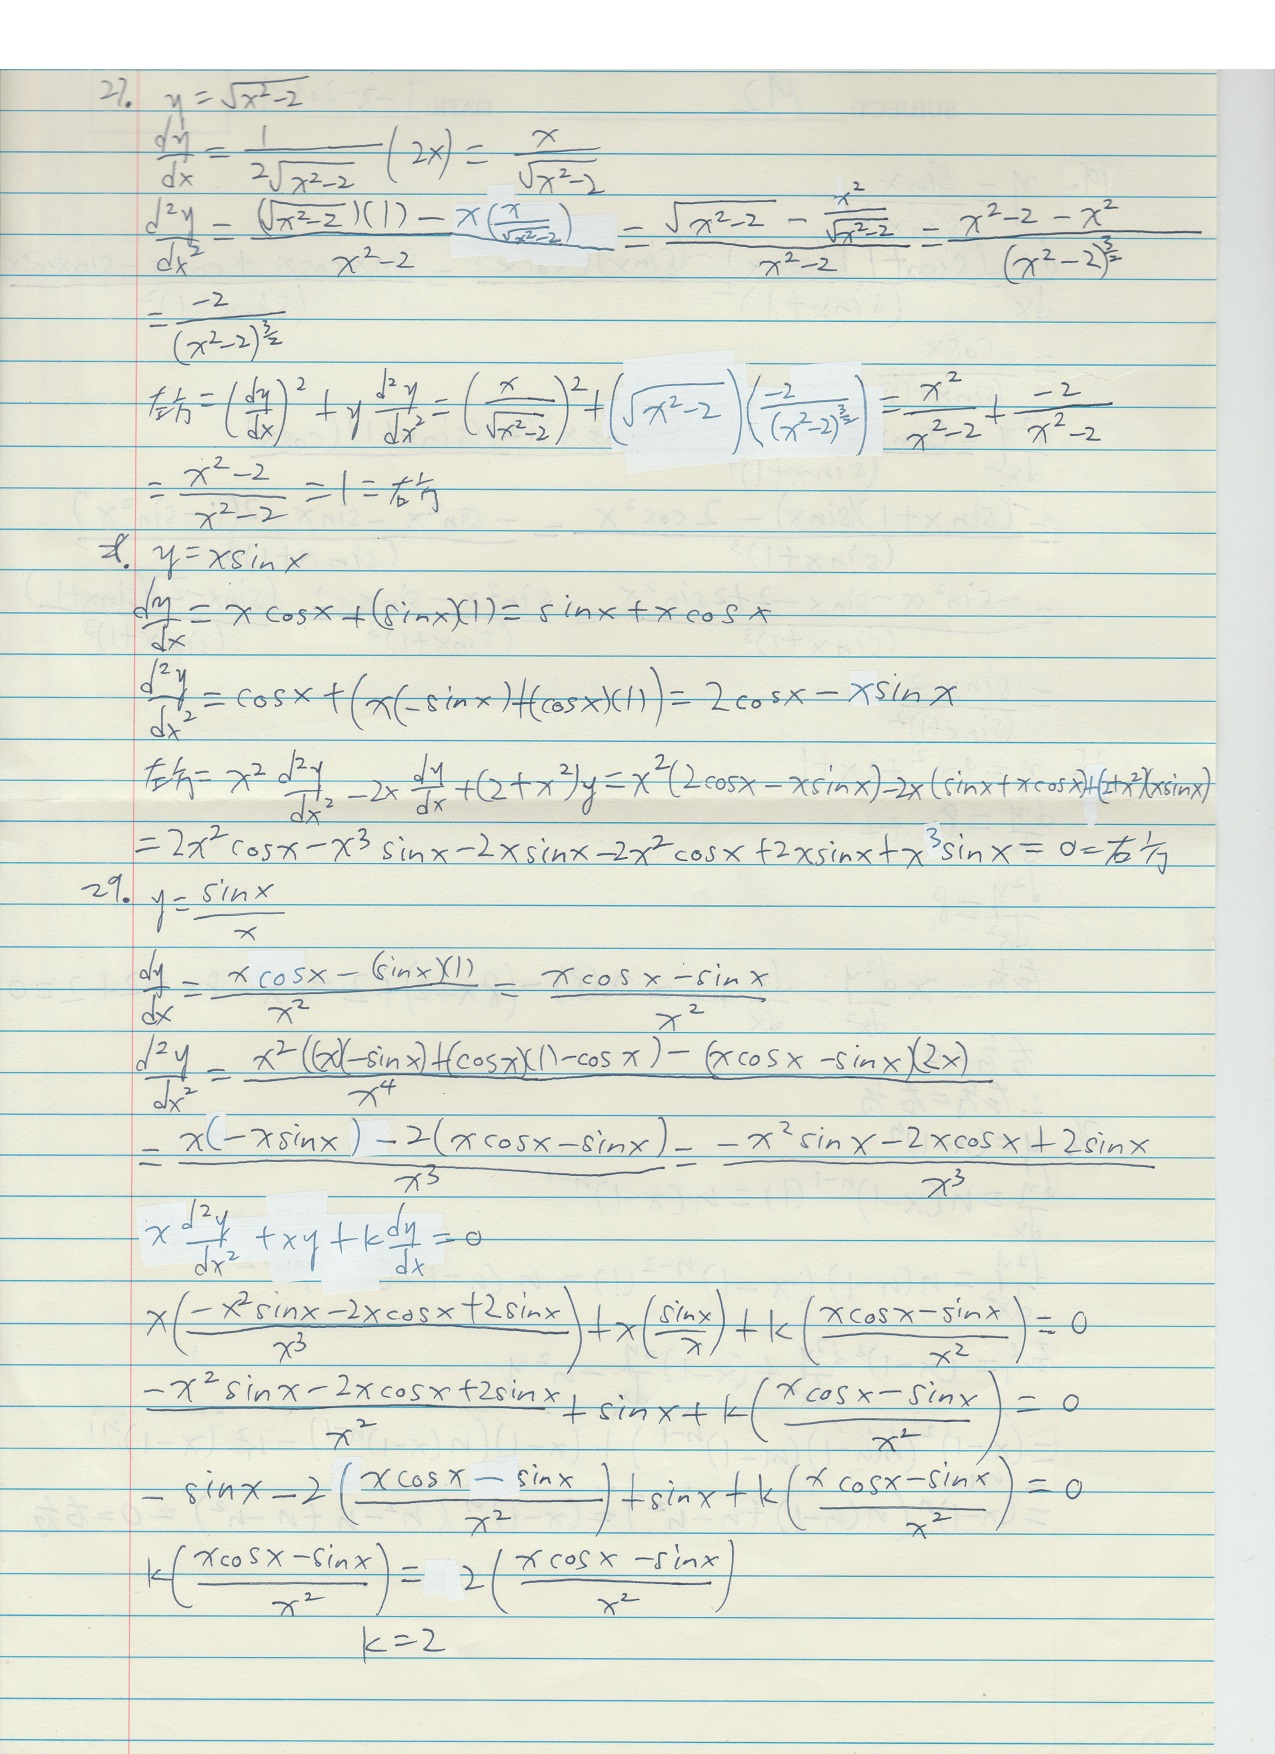 27. y = √(x²-2)
dy/dx = 1/(2√(x²-2)) (2x) = x/√(x²-2)
d²y/dx² = ((√(x²-2))(1) - x(x/√(x²-2)))/(x²-2) = (√(x²-2) - x²/√(x²-2))/(x²-2) = (x²-2-x²)/(x²-2)^(3/2)
= -2/(x²-2)^(3/2)
左方 = (dy/dx)² + y d²y/dx² = (x/√(x²-2))² + (√(x²-2))(-2/(x²-2)^(3/2)) = x²/(x²-2) + -2/(x²-2)
= (x²-2)/(x²-2) = 1 = 右方
y = xsinx
dy/dx = x cosx + (sinx)(1) = sinx + x cosx
d²y/dx² = cosx + (x(-sinx)+(cosx)(1)) = 2cosx - xsinx
左方 = x² d²y/dx² - 2x dy/dx + (2+x²)y = x²(2cosx - xsinx) - 2x(sinx + xcosx) + (2+x²)(xsinx)
= 2x²cosx - x³sinx - 2xsinx - 2x²cosx + 2xsinx + x³sinx = 0 = 右方
29. y = sinx/x
dy/dx = (xcosx - (sinx)(1))/x² = (xcosx - sinx)/x²
d²y/dx² = (x²((x)(-sinx)+(cosx)(1)-cosx) - (xcosx - sinx)(2x))/x⁴
= (x(-xsinx) - 2(xcosx - sinx))/x³ = (-x²sinx - 2xcosx + 2sinx)/x³
x d²y/dx² + xy + k dy/dx = 0
x((-x²sinx - 2xcosx + 2sinx)/x³) + x(sinx/x) + k((xcosx - sinx)/x²) = 0
(-x²sinx - 2xcosx + 2sinx)/x² + sinx + k((xcosx - sinx)/x²) = 0
- sinx - 2((xcosx - sinx)/x²) + sinx + k((xcosx - sinx)/x²) = 0
k((xcosx - sinx)/x²) = 2((xcosx - sinx)/x²)
k = 2